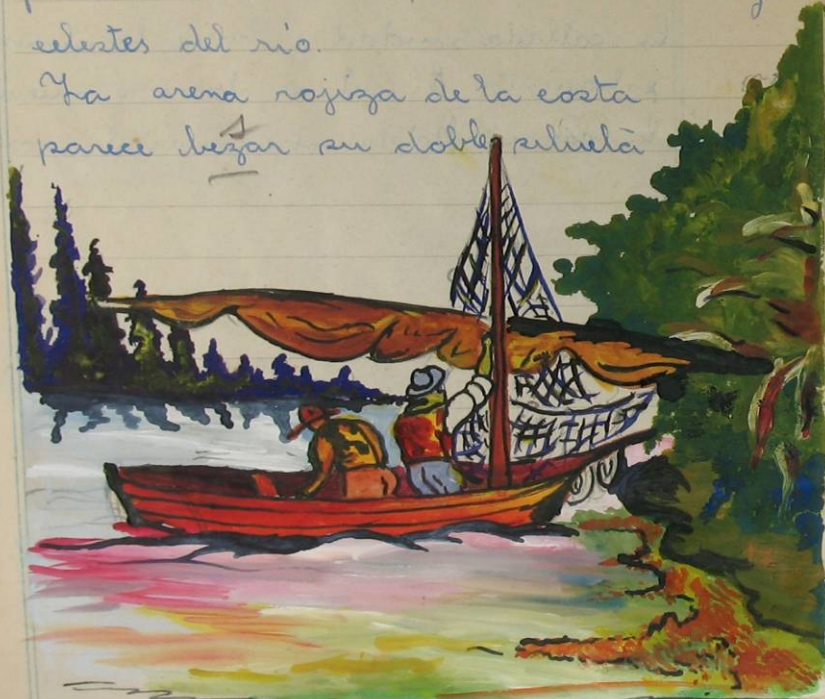 celestes del río.
La arena rojiza de la costa
parece bezar su doble silueta